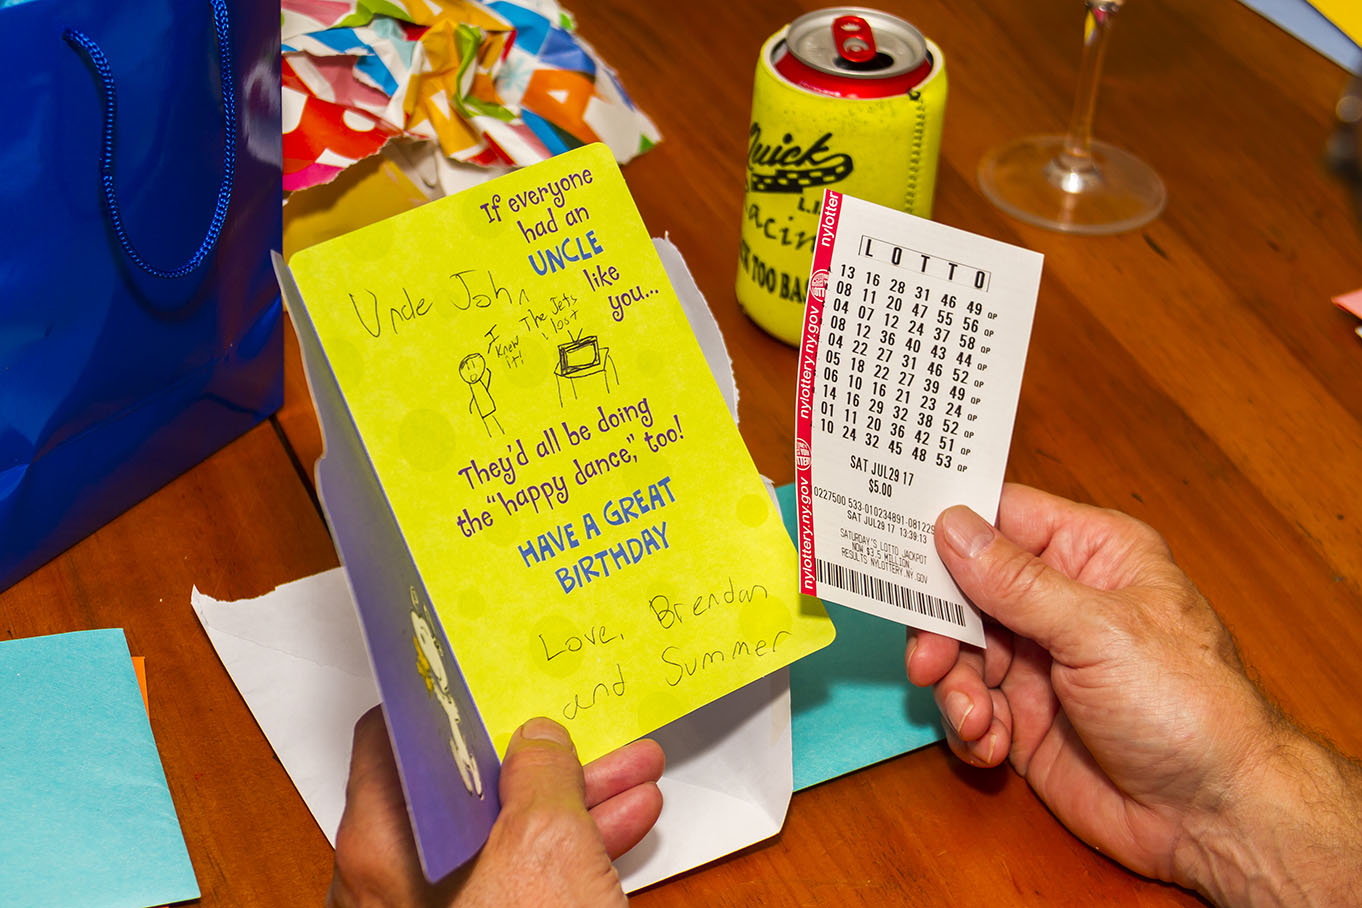 If everyone
had an
UNCLE
like
you...
Uncle John
I
Knew
it!
The Jets
lost
They'd all be doing
the "happy dance," too!
HAVE A GREAT
BIRTHDAY
Love, Brendan
and Summer
Quick
LI
acin
TOO BA
nylotter
nylottery.ny.gov
nylottery.ny.gov
LOTTO
13 16 28 31 46 49 QP
08 11 20 47 55 56 QP
04 07 12 24 37 58 QP
08 12 36 40 43 44 QP
04 22 27 31 46 52 QP
05 18 22 27 39 49 QP
06 10 16 21 23 24 QP
14 16 29 32 38 52 QP
01 11 20 36 42 51 QP
10 24 32 45 48 53 QP
SAT JUL29 17
$5.00
0227500 533-010234891-081229
SAT JUL29 17 13:39:13
SATURDAY'S LOTTO JACKPOT
NOW $3.5 MILLION.
RESULTS NYLOTTERY.NY.GOV